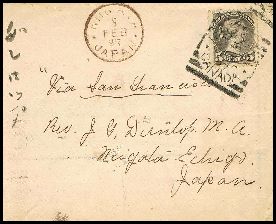 5
FEB
JAPAN
CANADA
"Via San Francisco
Rev. J. G. Dunlop. M. A.
Niigata Echigo.
Japan.